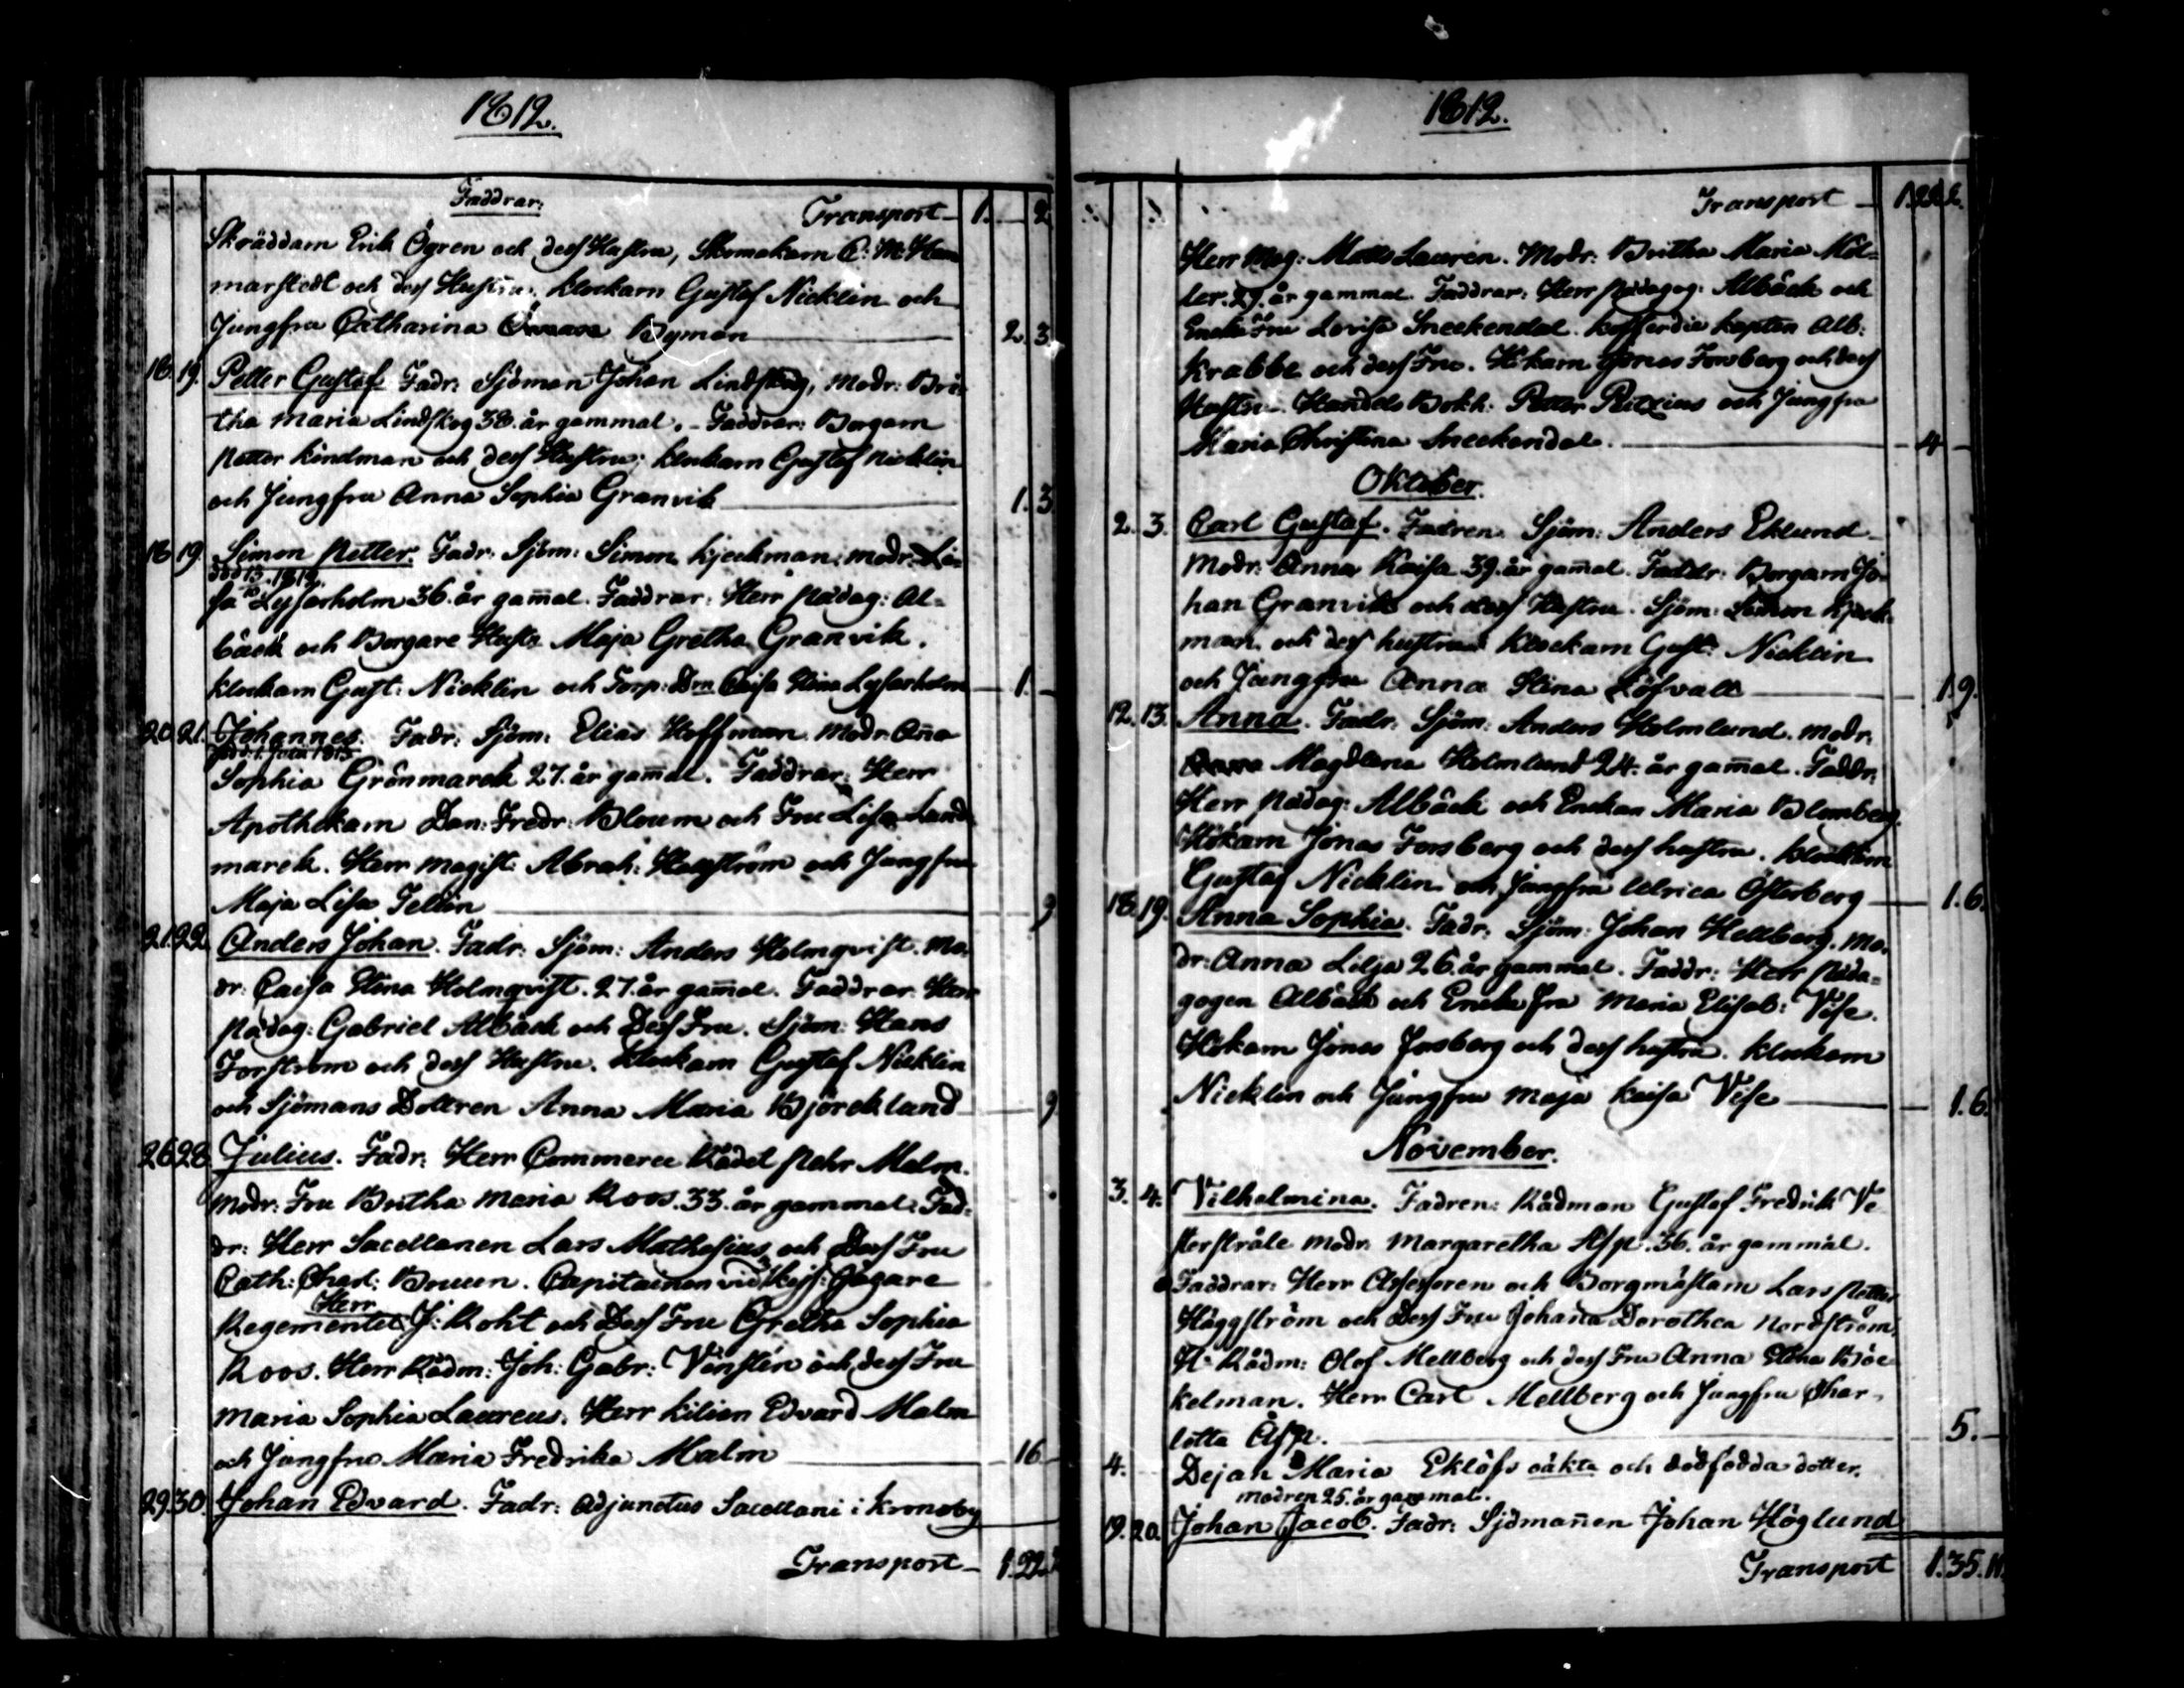 1812.
Faddrar: Transport 1. — 2.
Skräddarn Erik Ögren och dess Hustru, Skomakarn C: M: Ham
marstedt och dess Hustru. Klockarn Gustaf Nicklin och
Jungfru Catharina Byman 2. 3.
18. 19. Petter Gustaf Fadr: Sjöman Johan Lindskog, Modr: Bri
tha Maria Lindskog 38. år gammal. Faddrar: Borgarn
Petter Kindman och dess Hustru; Klockarn Gustaf Nicklin
och Jungfru Anna Sophia Granvik 1. 3
18 19. Simon Petter. Fadr: Sjöm: Simon Kjeckman; modr: Lo-
död 1812.
sa Lysarholm 36. år gam̄al. Faddrar: Herr Pädag: Al-
bäck och Borgare Hust: Maja Gretha Granvik.
Klockarn Gust: Nicklin och Torp: Dtn Caisa Stina Lysarholm 1. —
20. 21. Johannes. Fadr: Sjöm: Elias Hoffman. Modr. An̄a
död 1. Junii 1813
Sophia Grönmarck 27. år gam̄al. Faddrar: Herr
Apothekarn Dan: Fredr: Bloum och Fru Lisa Land
marck. Herr Magist: Abrah: Hellström och Jungfru
Maja Lisa Tellin 9
21. 22. Anders Johan. Fadr: Sjöm: Anders Holmqvist. Mo
dr: Caisa Stina Holmqvist. 27. år gam̄al. Faddrar. Herr
Pädag: Gabriel Albäck och Dess Fru. Sjöm: Hans
Forström och dess Hustru. Klockarn Gustaf Nicklin
och Sjömans Dottren Anna Maria Björcklund 9
26 28 Julius. Fadr: Herr Commerce Rådet Pehr Malm.
Modr: Fru Britha Maria Roos. 33. år gammal. Fad-
dr: Herr Sacellanen Lars Mathesius och Dess Fru
Cath: Charl: Bruun. Capitainen vid Kejs: Jägare
Herr
Regementet J: Rokt och Dess Fru Gretha Sophia
Roos. Herr Rådm: Joh: Gabr: Vänstén och dess Fru
Maria Sophia Laureus. Herr Kilian Edvard Malm
och Jungfru Maria Fredrika Malm 16
29. 30. Johan Edvard. Fadr: Adjunctus Sacellani i Kronoby
Transport 1. 22. 2
1812.
Transport 1. 22. 2.
Herr Mag: Matts Laurén. Modr: Britha Maria Möl-
ler. 29. år gammal. Faddrar: Herr Pädagog: Albäck och
Enke Fru Lovisa Sneckendal. Kofferdie Kapten Alb:
Krabbe och dess Fru. Hökarn Jonas Forsberg och dess
Hustru. Handels Bokh: Petter Ritzius och Jungfru
Maria Christina Sneckendal. 4 —
Oktober.
2. 3. Carl Gustaf. Fadren. Sjöm: Anders Eklund
Modr: Anna Kaisa 39. år gam̄al. Faddr: Borgarn Jo-
han Granvik och dess Hustru. Sjöm: Simon Kjeck-
man och dess hustru. Klockarn Gust: Nicklin
och Jungfru Anna Stina Löfvall 1. 9.
12. 13. Anna. Fadr: Sjöm: Anders Holmlund. Modr:
Magdlena Holmlund 24. år gam̄al. Faddr:
Herr Pädag: Albäck och Enckan Maria Blomberg.
Hökarn Jonas Forsberg och dess hustru. Klockarn
Gustaf Nicklin och Jungfru Ulrica Österberg 1. 6.
18. 19. Anna Sophia. Fadr: Sjöm: Johan Hellberg. Mo-
dr: Anna Lilja 26. år gammal. Faddr: Herr Päda-
gogen Albäck och Encke fru Maria Elisab: Vise.
Hökarn Jonas Forsberg och dess hustru. Klockarn
Nicklin och Jungfru Maja Kaisa Vise 1. 6.
November.
3. 4. Vilhelmina. Fadren: Rådman Gustaf Fredrik Ve
sterstråle modr: Margaretha Asp. 36. år gammal.
Faddrar: Herr Assessoren och Borgmästarn Lars Petter
Häggström och Dess Fru Johan̄a Dorothea Nordström.
H: Rådm: Olof Mellberg och dess Fru Anna Stina Böc
kelman. Herr Carl Mellberg och Jungfru Char-
lotta Asp. 5. —
4. Dejan Maria Eklöfs oäkta och dödfödda dotter.
modren 25. år gammal.
19. 20. Johan Jacob. Fadr: Sjöman̄en Johan Höglund
Transport 1. 35. 11.